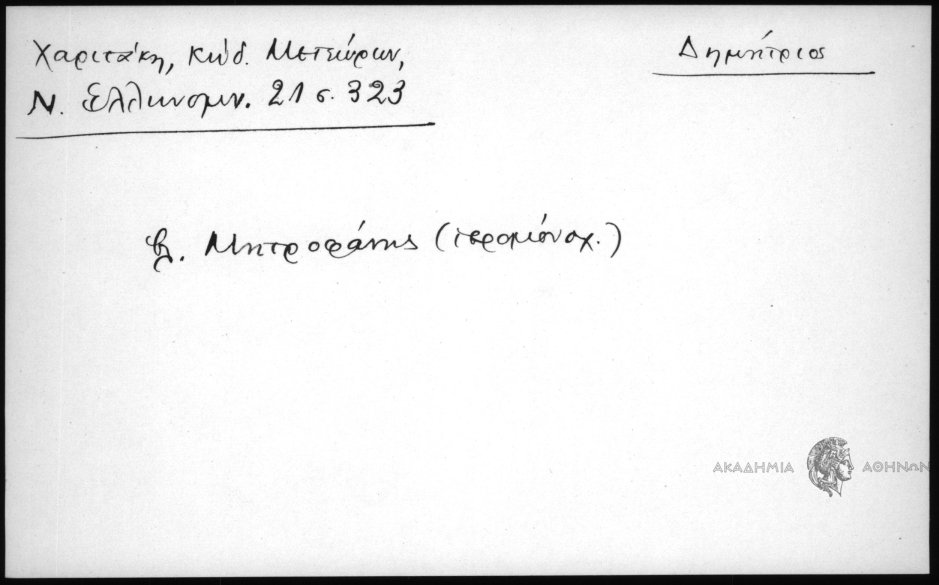 Χαριτάκη, Κώδ. Μετεώρων,
Ν. Ελληνομν. 21 σ. 323
Δημήτριος
βλ. Μητροφάνης (ιερομόναχ.)
ΑΚΑΔΗΜΙΑ ΑΘΗΝΩΝ